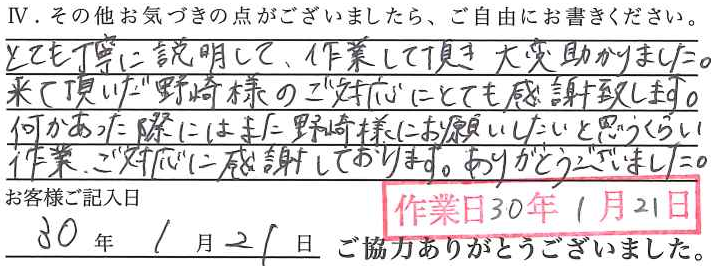 Ⅳ．その他お気づきの点がございましたら、ご自由にお書きください。
とても丁寧に説明して、作業して頂き 大変助かりました。
来て頂いた野崎様のご対応にとても感謝致します。
何かあった際にはまた野崎様にお願いしたいと思うくらい
作業、ご対応に感謝しております。ありがとうございました。
お客様ご記入日
作業日30年1月21日
30年1月21日 ご協力ありがとうございました。